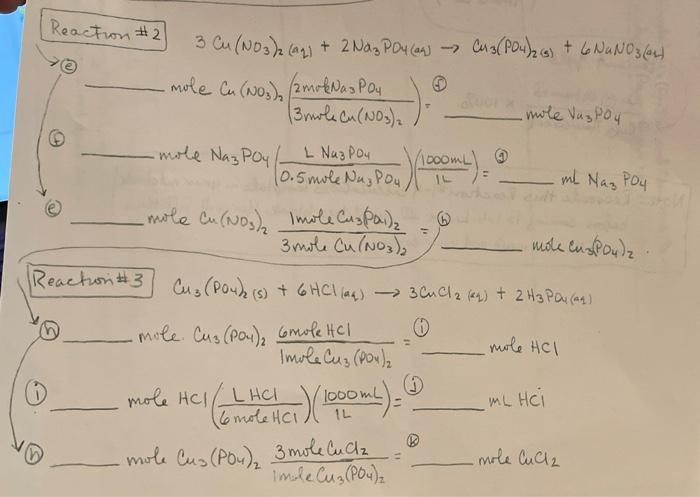 Reaction #2
3 Cu(NO3)2 (aq) + 2Na3PO4(aq) → Cu3(PO4)2(s) + 6NaNO3(aq)
ⓔ ____ mole Cu(NO3)2 (2moleNa3PO4 / 3moleCu(NO3)2) = ⓕ ____ mole Na3PO4
ⓕ ____ mole Na3PO4 (L Na3PO4 / 0.5 mole Na3PO4)(1000mL / 1L) = ⓖ ____ mL Na3PO4
ⓔ ____ mole Cu(NO3)2 1mole Cu3(PO4)2 / 3mole Cu(NO3)2 = ⓗ ____ mole Cu3(PO4)2.
Reaction #3 Cu3(PO4)2(s) + 6HCl(aq) → 3CuCl2(aq) + 2H3PO4(aq)
ⓗ ____ mole Cu3(PO4)2 6mole HCl / 1mole Cu3(PO4)2 = ⓘ ____ mole HCl
ⓘ ____ mole HCl (L HCl / 6mole HCl)(1000mL / 1L) = ⓙ ____ mL HCl
ⓗ ____ mole Cu3(PO4)2 3mole CuCl2 / 1mole Cu3(PO4)2 = ⓚ ____ mole CuCl2